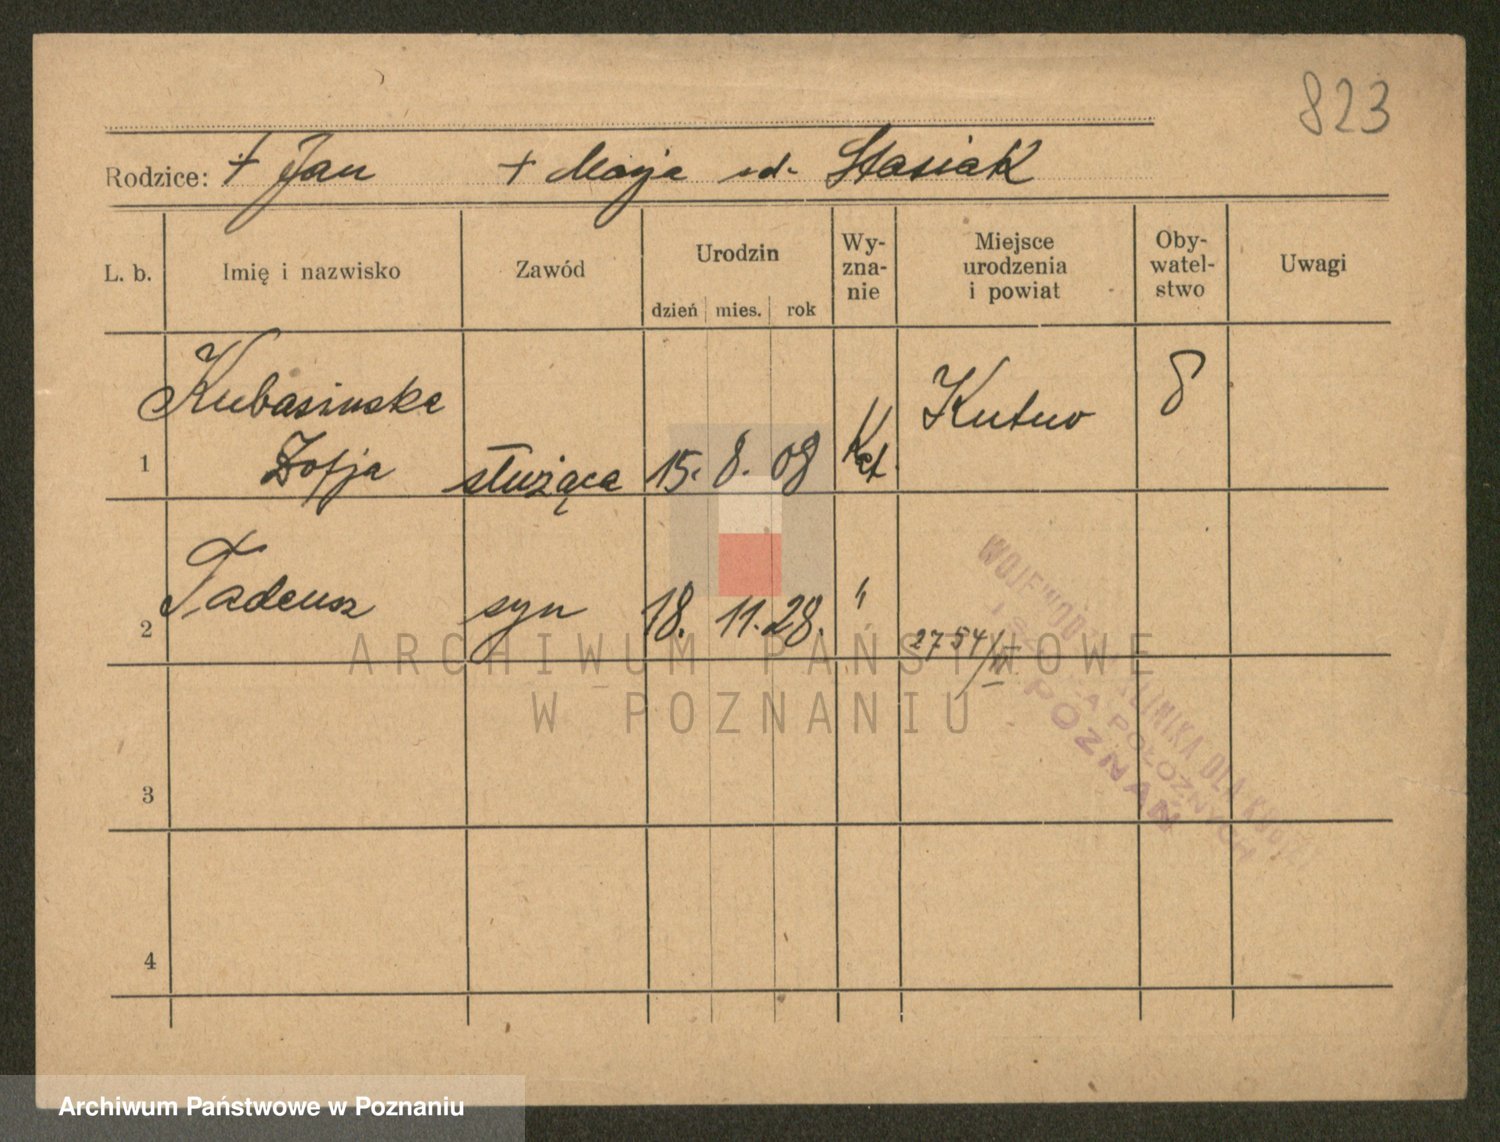 823
Rodzice: + Jan + Marja od. Stasiak
L. b.
Imię i nazwisko
Zawód
Urodzin
dzień mies. rok
Wy-
zna-
nie
Miejsce
urodzenia
i powiat
Oby-
watel-
stwo
Uwagi
Kubasinska
1 Zofja służąca 15. 8. 08 Kat. Kutno
2 Tadeusz syn 18. 11. 28. "
2754/
3
4
WOJEWÓDZKA KLINIKA DLA KOBIET
POŁOŻNYCH
POZNAŃ
ARCHIWUM PAŃSTWOWE
W POZNANIU
Archiwum Państwowe w Poznaniu